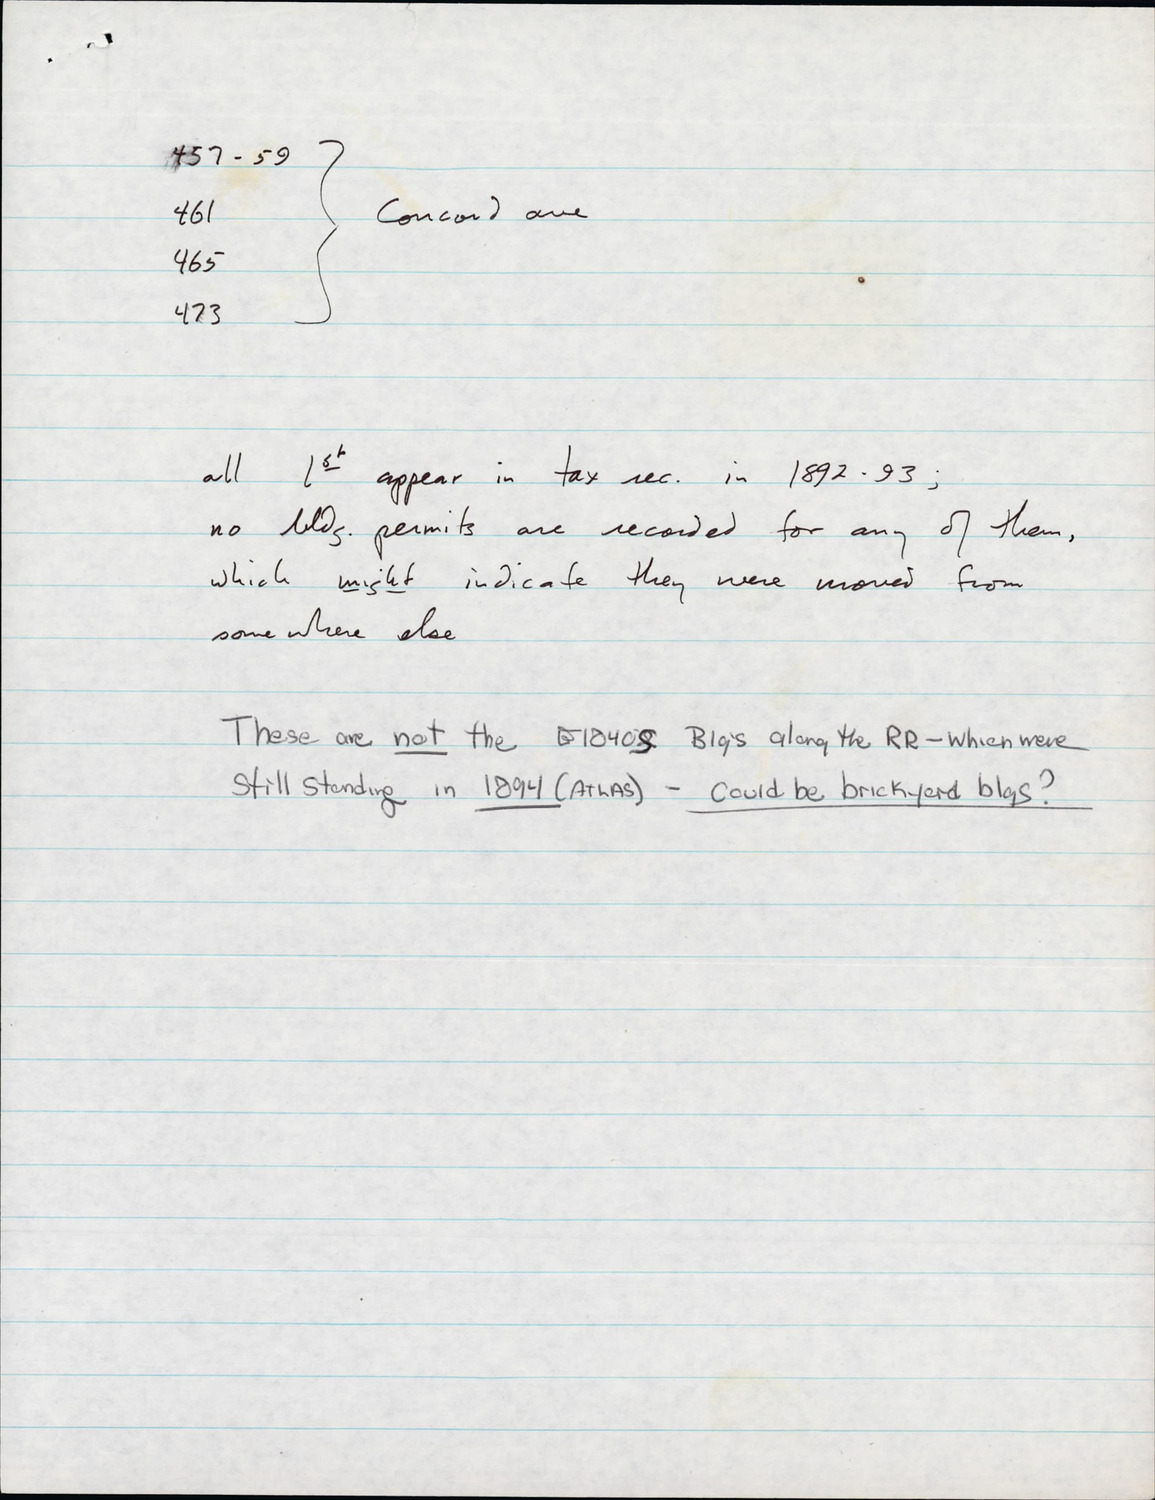 457-59
461
Concord ave
465
473
all 1st appear in tax rec. in 1892-93;
no bldg. permits are recorded for any of them,
which might indicate they were moved from
somewhere else
These are not the 1840s Blgs along the RR - which were
still standing in 1894 (ATLAS) - could be brickyard blgs?